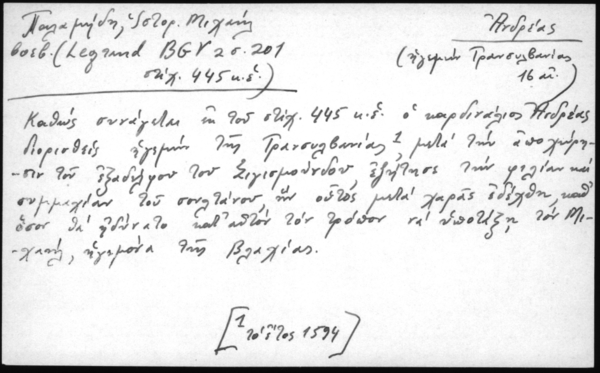 Παλαμήδη, Ἱστορ. Μιχαήλ
βοεβ. (Legrand BGV 2 σ. 201
στίχ. 445 κ.ἑ.)
Ἀνδρέας
(ἡγεμὼν Τρανσυλβανίας
16 αἰ.)
Καθὼς συνάγεται ἐκ τοῦ στίχ. 445 κ.ἑ. ὁ καρδινάλιος Ἀνδρέας
διορισθεὶς ἡγεμὼν τῆς Τρανσυλβανίας 1 μετὰ τὴν ἀποχώρη-
-σιν τοῦ ἐξαδέλφου του Σιγισμούνδου ἐζήτησε τὴν φιλίαν καὶ
συμμαχίαν τοῦ σουλτάνου, ἣν οὗτος μετὰ χαρᾶς ἐδέχθη, καθ'
ὅσον θὰ ἠδύνατο κατ' αὐτὸν τὸν τρόπον νὰ ὑποτάξῃ τὸν Μι-
-χαήλ, ἡγεμόνα τῆς Βλαχίας.
[1 τὸ ἔτος 1594]